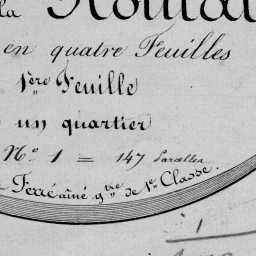 la
en quatre Feuilles
1ère Feuille
un quartier
N° 1 = 147 Parcelles
Ferré aîné gtre de 1e Classe.
1